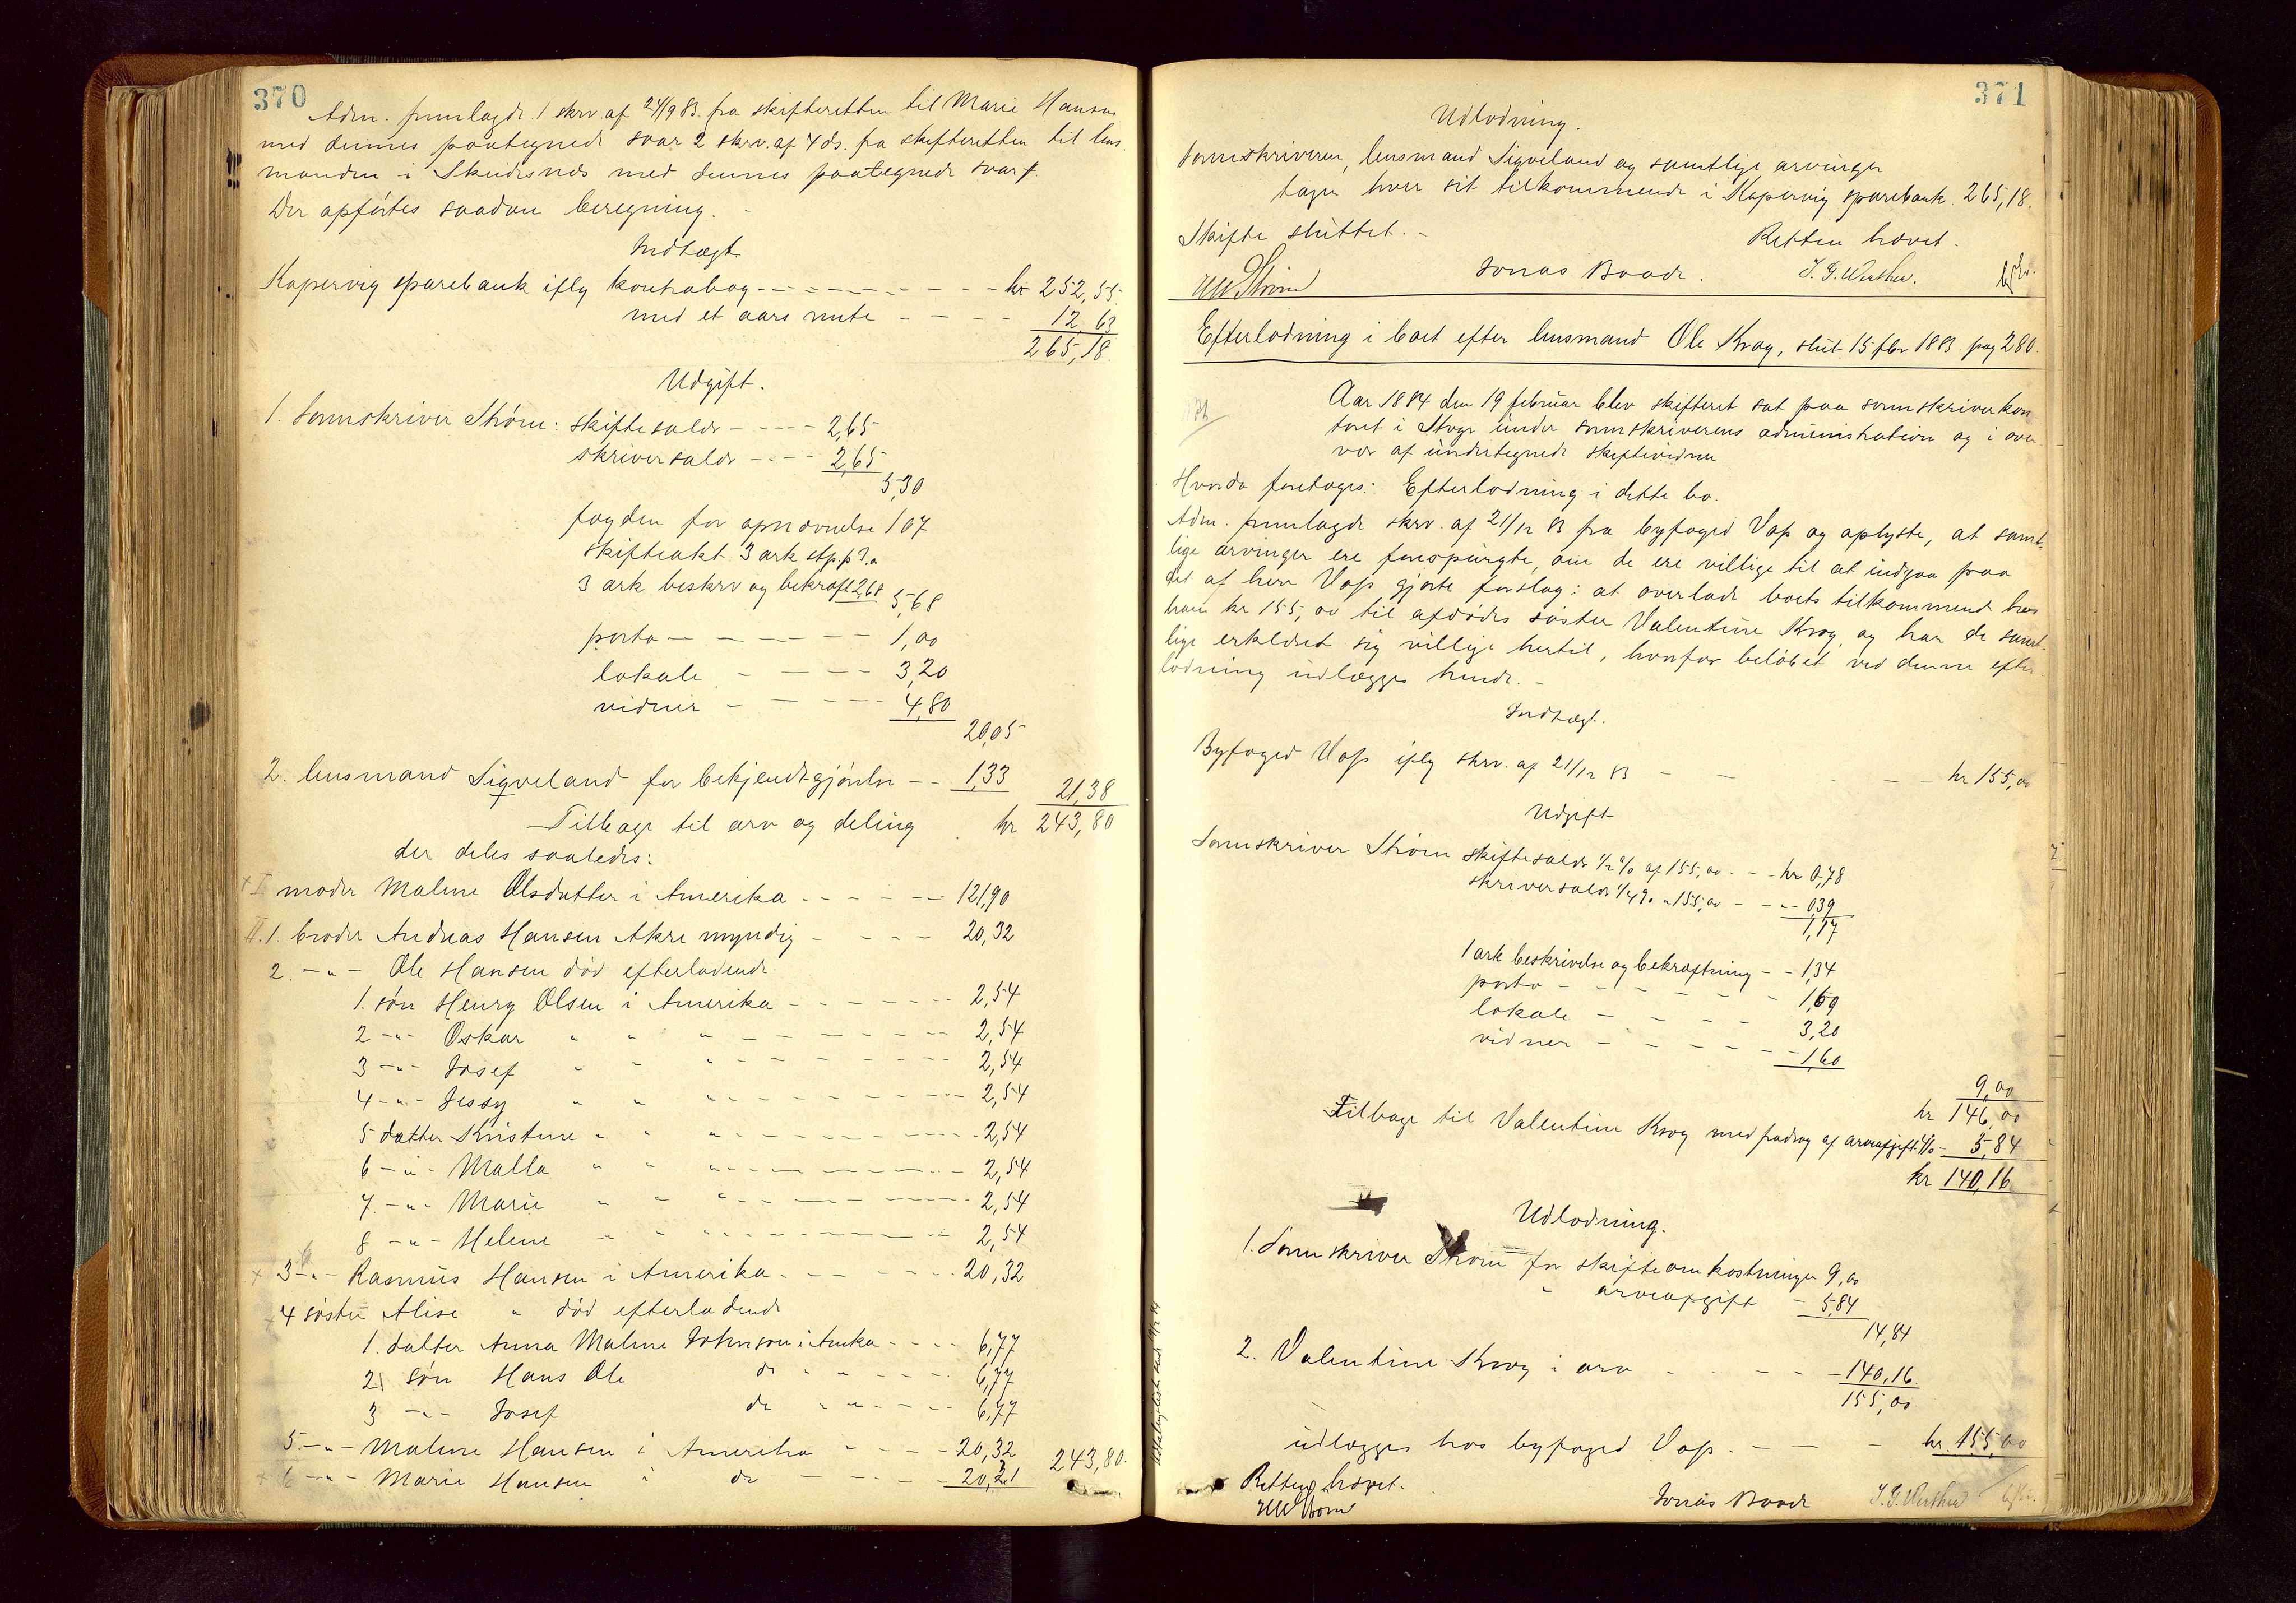 370
Adm. fremlagde 1 skrv. af 24/9 83. fra skifteretten til Marie Hansen
med dennes paategnede svar 2 skrv. af 4 ds. fra skifteretten til lens
manden i Skudesnæs med dennes paategnede svar
Der opførtes saadan beregning. -
Indtægt
Kopervig sparebank iflg kontrabog - - - - kr 252,55
med et aars rente - - - - 12,63
265,18
Udgift.
1. Sorenskriver Strøm: skiftesalær - - - - 2,65
skriversalær - - - - 2,65
5,30
fogden for opnævnelse 1 07
skifteakt 3 ark
3 ark beskrv og bekræft 2,68 5,68
porto - - - - 1,00
lokale - - - - 3,20
vidner - - - - 4,80
20,05
2. lensmand Sigveland for bekjendtgjørelse - - 1,33 21,38
Tilbage til arv og deling kr 243,80
der deles saaledes:
I moder Malene Olsdatter i Amerika - - - - 121,90
II. 1. broder Andreas Hansen Akre myndig - - - - 20,32
2. - " - Ole Hansen død efterladende
1. søn Henry Olsen i Amerika - - - - 2,54
2 - " - Oskar " " " - - - - 2,54
3 - " - Josef " " " - - - - 2,54
4 - " - Jessy " " " - - - - 2,54
5 datter Kristine " " " - - - - 2,54
6 - " - Malla " " " - - - - 2,54
7. - " - Marie " " " - - - - 2,54
8 - " - Helene " " " - - - - 2,54
3 - " - Rasmus Hansen i Amerika - - - - 20,32
4 søster Alise " død efterladende
1. datter Anna Maline Johnson i Amka - - - - 6,77
2 søn Hans Ole do " - - - - 6,77
3 - " - Josef do " " - - - - 6,77
5. - " - Maline Hansen i Amerika - - - - 20,32 243,80.
6 - " - Marie Hansen i do - - - - 20,31
371
Udlodning.
Sorenskriveren, lensmand Sigveland og samtlige arvinger
tager hver sit tilkommende i Kopervig sparebank. 265,18.
Skifte sluttet. - Retten hævet.
Strøm Jonas Baade. J. G. Werther.
Efterlodning i boet efter lensmand Ole Krog, slut 15 fbr 1883. pag 280.
Aar 1884 den 19 februar blev skifteret sat paa sorenskriverkon
toret i Avg under sorenskriverens administration og i over
vær af undertegnede skiftevidner
Hvorda foretoges: Efterlodning i dette bo.
Adm. fremlagde skrv. af 21/12 83 fra byfoged Vos og oplyste, at samt
lige arvinger ere forespurgte, om de ere villige til at indgaa paa
det af herr Vos gjorte forslag: at overlade boets tilkommende hos
ham kr 155,00 til afdødes søster Valentine Krog, og har de samt
lige erklæret sig villige hertil, hvorfor beløbet ved denne efter
lodning udlægges hende. -
Indtægt.
Byfoged Vos iflg skrv. af 21/12 83 - - - - kr 155,00
Udgift
Sorenskriver Strøm skiftesalær 1/2 % af 155,00 - - kr 0,78
skriversalær 1/4 % " 155,00 - - " - 0,39
1,17
1 ark beskrivelse og bekræftning - - 1,34
porto - - - - 1,69
lokale - - - - 3,20
vidner - - - - 1,60
9,00
kr 146,00
Tilbage til Valentine Krog med fradrag af arveafgift 4% - 5,84
kr 140,16
Udlodning.
1. Sorenskriver Strøm for skifteomkostninger 9,00
" arveafgift - 5,84
14,84
2. Valentine Krog i arv - - - - 140,16
155,00
udlægges hos byfoged Vos. - - - kr. 155,00
Retten hævet.
Strøm Jonas Baade J. G. Werther